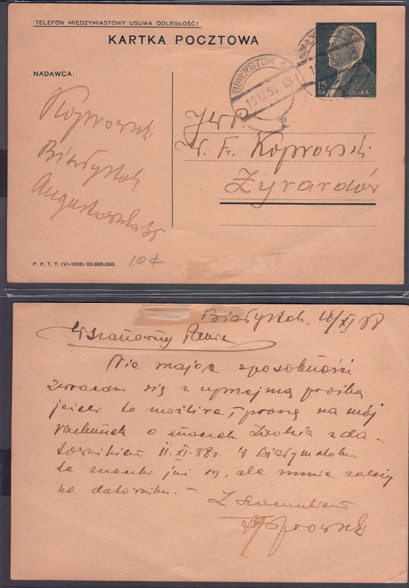 TELEFON MIĘDZYMIASTOWY USUWA ODLEGŁOŚĆ!
KARTKA POCZTOWA
NADAWCA:
Koprowski
Białystok
Augustowska
BIAŁYSTOK 1
15
POLSKA
JWP.
W. Fr. Koprowski
Żyrardów
P. P. T. T. (VI-1938) 20.000.000.
10
Białystok,
Szanowny Panie
Nie mając sposobności
zwracam się z uprzejmą prośbą
jeżeli to możliwe, proszę na mój
rachunek o znaczek z da-
townikiem 11.XI. w Białymstoku
te znaczki już są, ale mnie zależy
na datowniku. –
Z szacunkiem
Koprowski